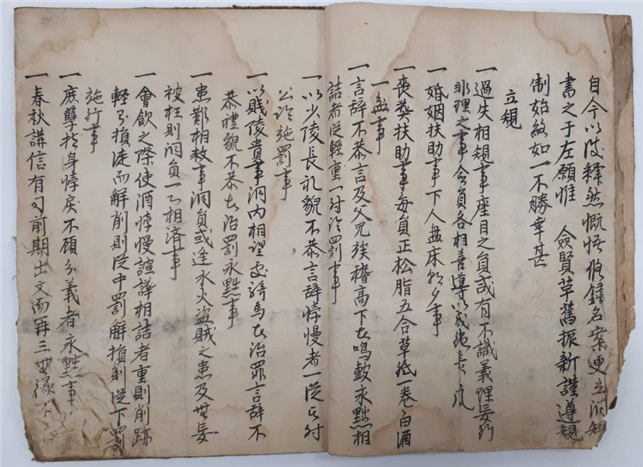 自今以後釋然慨悟修錄名案更立洞知
書之于左願惟 僉賢革舊振新謹遵規
制始數如一不勝幸甚
立規
一 過失相規事座目之員或有不識義理妄行
非理之事僉員各相善導以成德業事
一 婚姻扶助事下人盤床祭多事
一 喪葬扶助事每員正松脂五合草紙一卷白酒
一盆事
一 言辭不恭言及父兄族稽高下者鳴鼓永黜相
詰者從輕重一付治罰事
一 以少陵長礼貌不恭言辭悖慢者一從公付
公論施罰事
一 以賤陵貴事洞內相望處騎馬者治罪言辭不
恭禮貌不恭者治罰永黜事
一 患難相救事洞員或逢水火盜賊之患及無妄
被枉則洞員一一相濟事
一 會飲之際使酒悖慢諠譁相詰者重則削跡
輕則損徒而解削則從中罰解損則從下罰
施行事
一 庶孽指身悖戾不顧分義者永黜事
一 春秋講信有司前期出文而再三